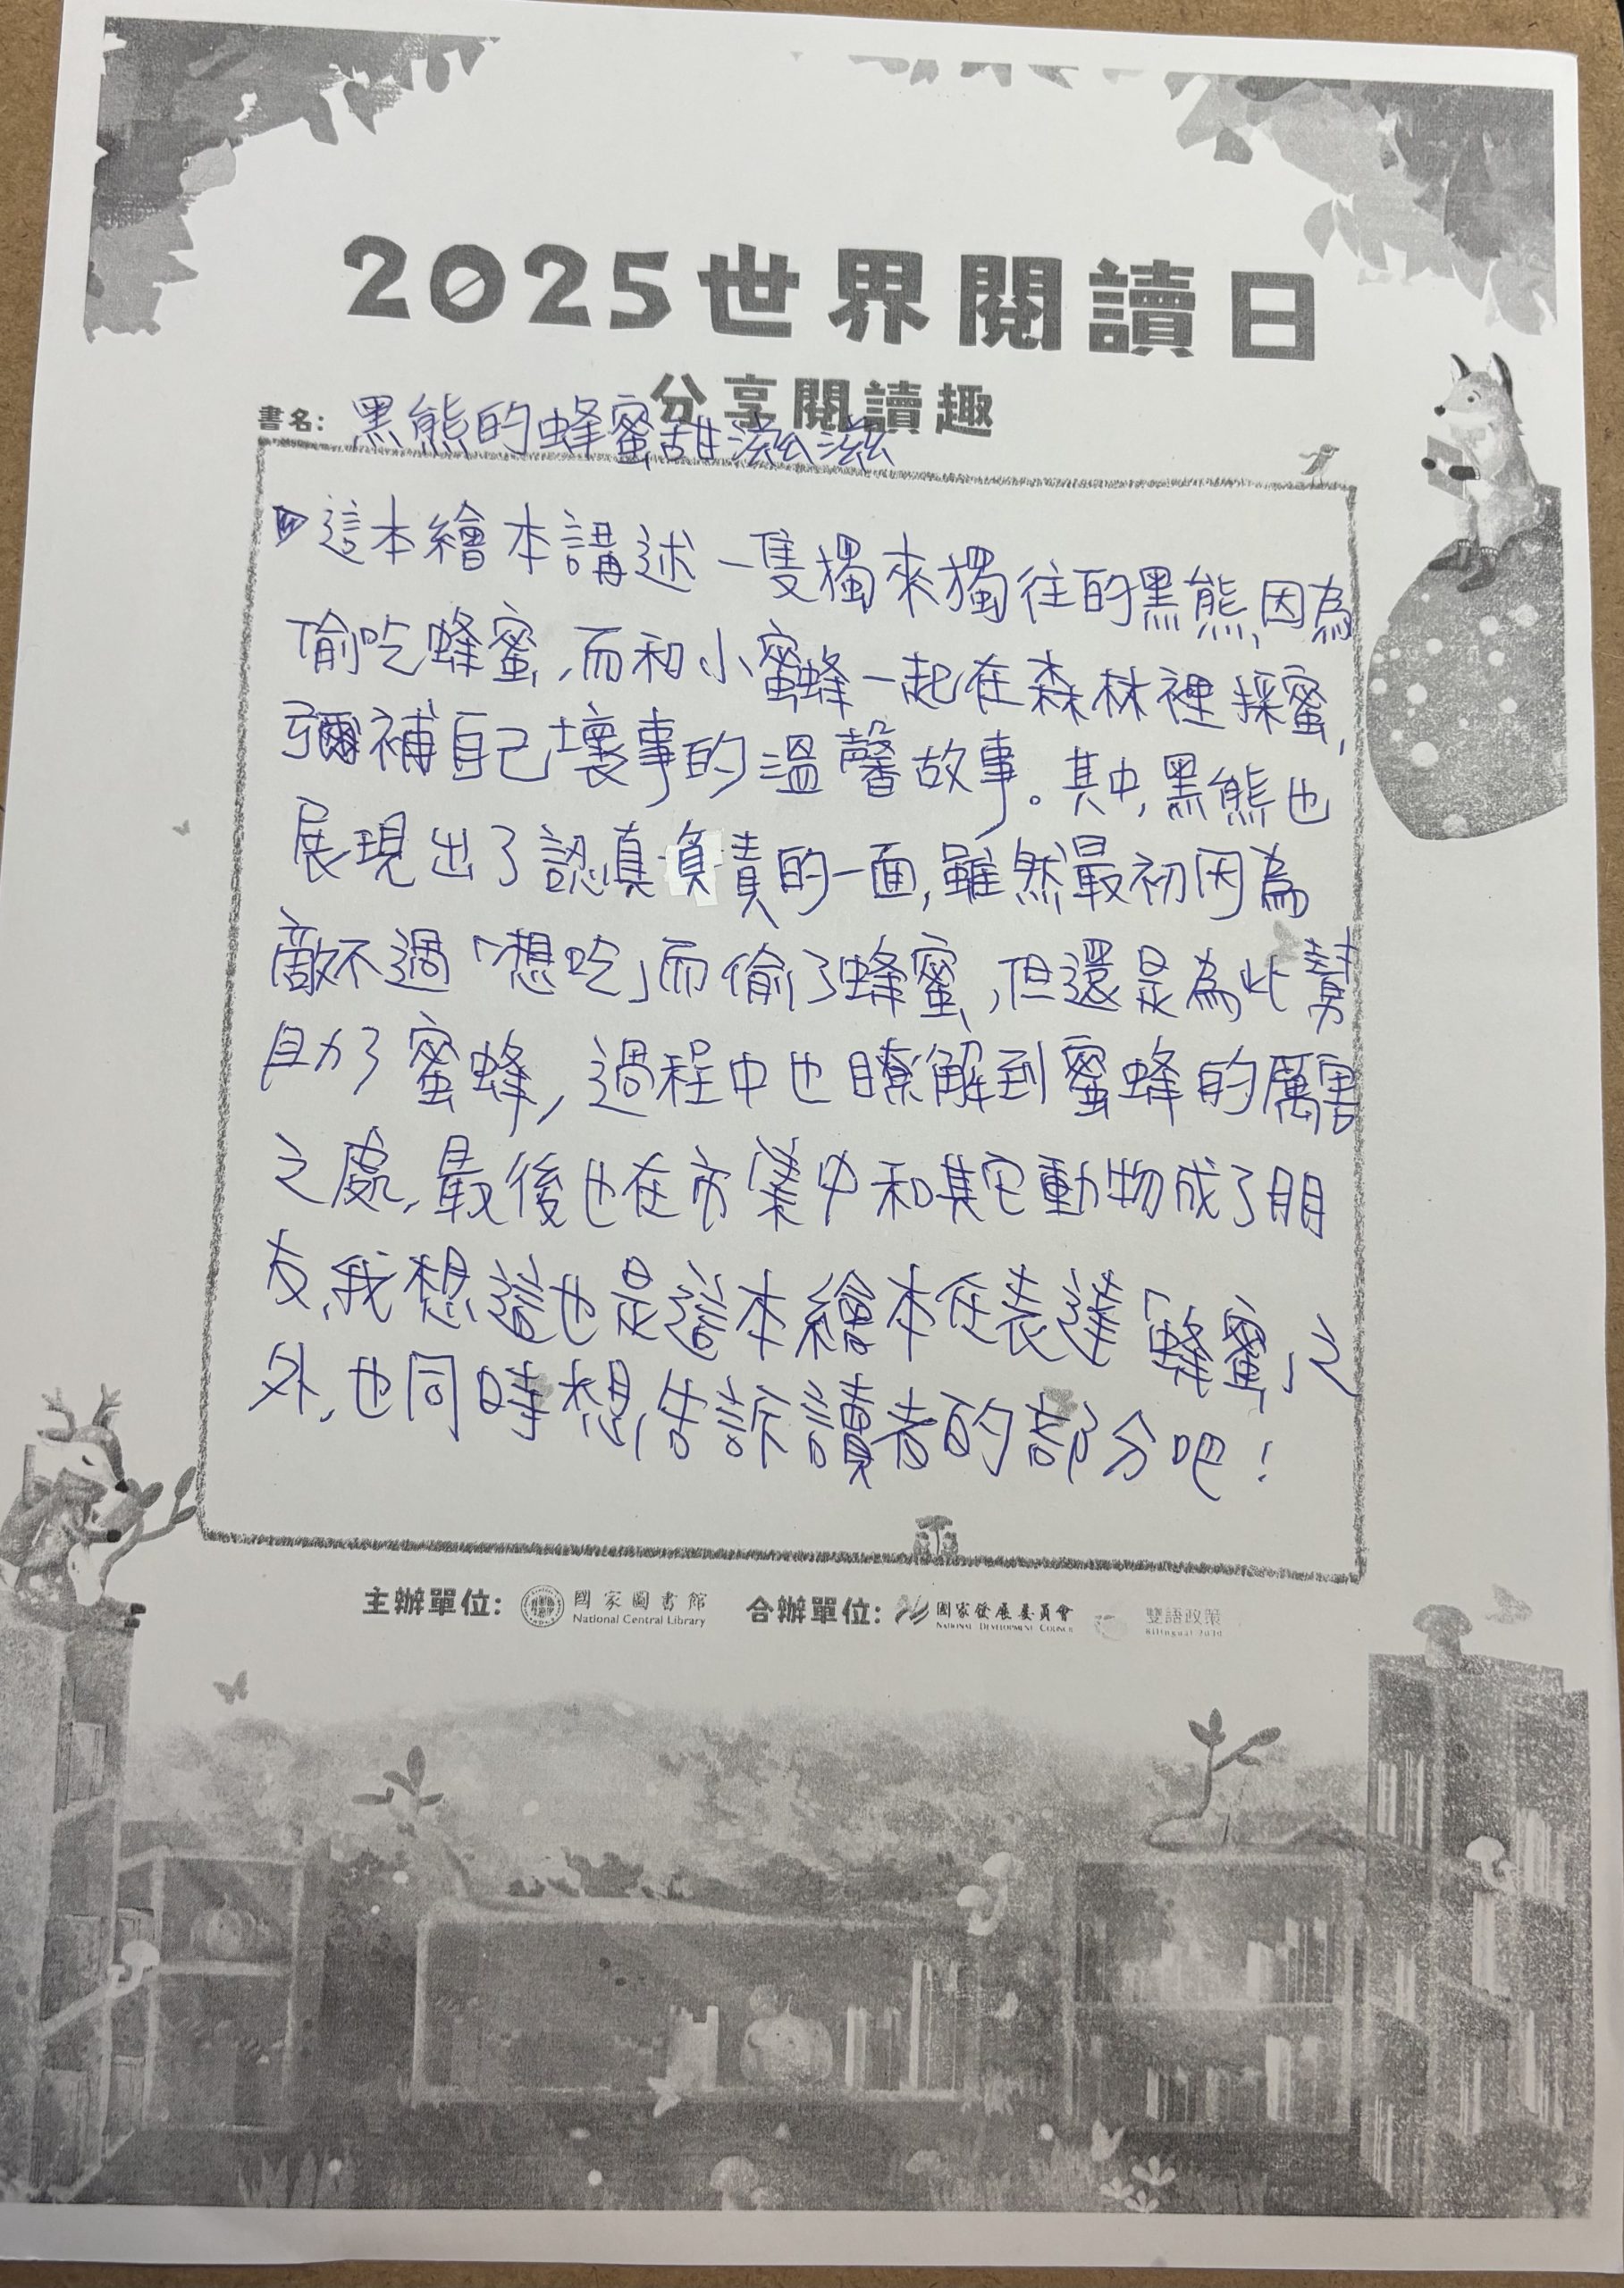 2025世界閱讀日
分享閱讀趣
書名：黑熊的蜂蜜甜滋滋
這本繪本講述一隻獨來獨往的黑熊,因為
偷吃蜂蜜,而和小蜜蜂一起在森林裡採蜜,
彌補自己壞事的溫馨故事。其中,黑熊也
展現出了認真負責的一面,雖然最初因為
敵不過「想吃」而偷了蜂蜜,但還是為此幫
助了蜜蜂,過程中也瞭解到蜜蜂的厲害
之處,最後也在市集中和其它動物成了朋
友,我想這也是這本繪本在表達「蜂蜜」之
外,也同時想告訴讀者的部分吧!
主辦單位: 國家圖書館 National Central Library 合辦單位: 國家發展委員會 National Development Council 雙語政策 Bilingual 2030